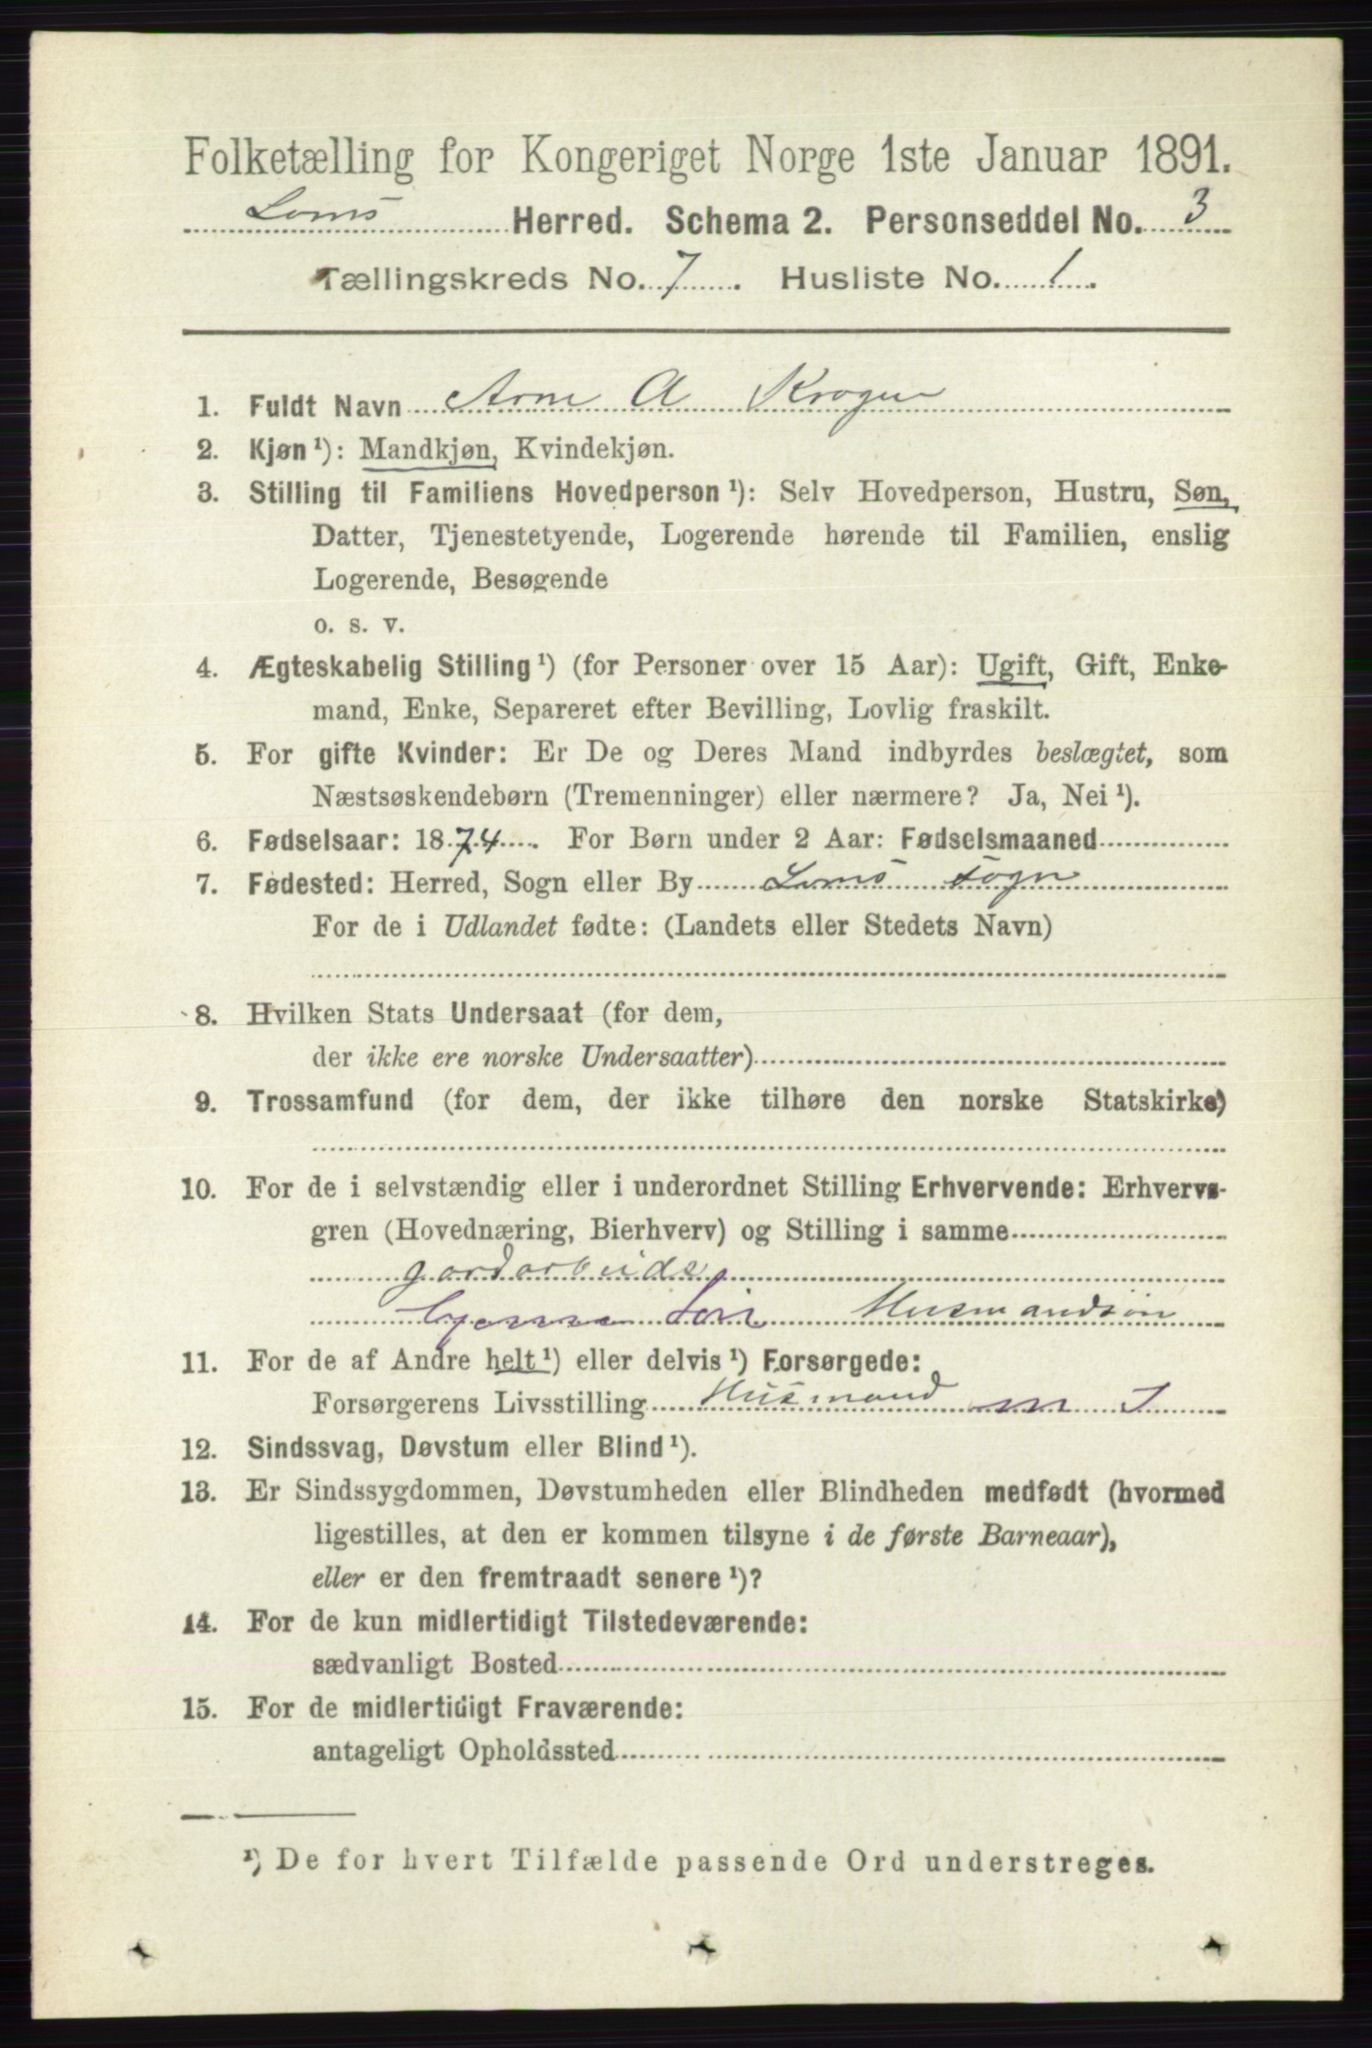 Folketælling for Kongeriget Norge 1ste Januar 1891.
Loms Herred. Schema 2. Personseddel No. 3
Tællingskreds No. 7. Husliste No. 1.
1. Fuldt Navn Arne A Krogen
2. Kjøn ¹): Mandkjøn, Kvindekjøn.
3. Stilling til Familiens Hovedperson ¹): Selv Hovedperson, Hustru, Søn,
Datter, Tjenestetyende, Logerende hørende til Familien, enslig
Logerende, Besøgende
o. s. v.
4. Ægteskabelig Stilling ¹) (for Personer over 15 Aar): Ugift, Gift, Enke-
mand, Enke, Separeret efter Bevilling, Lovlig fraskilt.
5. For gifte Kvinder: Er De og Deres Mand indbyrdes beslægtet, som
Næstsøskendebørn (Tremenninger) eller nærmere? Ja, Nei ¹).
6. Fødselsaar: 1874. For Børn under 2 Aar: Fødselsmaaned
7. Fødested: Herred, Sogn eller By Loms Sogn
For de i Udlandet fødte: (Landets eller Stedets Navn)
8. Hvilken Stats Undersaat (for dem,
der ikke ere norske Undersaatter)
9. Trossamfund (for dem, der ikke tilhøre den norske Statskirke)
10. For de i selvstændig eller i underordnet Stilling Erhvervende: Erhvervs-
gren (Hovednæring, Bierhverv) og Stilling i samme
gardarbeide
Husmandsøn
11. For de af Andre helt ¹) eller delvis ¹) Forsørgede:
Forsørgerens Livsstilling Husmand m J
12. Sindssvag, Døvstum eller Blind ¹).
13. Er Sindssygdommen, Døvstumheden eller Blindheden medfødt (hvormed
ligestilles, at den er kommen tilsyne i de første Barneaar),
eller er den fremtraadt senere ¹)?
14. For de kun midlertidigt Tilstedeværende:
sædvanligt Bosted
15. For de midlertidigt Fraværende:
antageligt Opholdssted
¹) De for hvert Tilfælde passende Ord understreges.